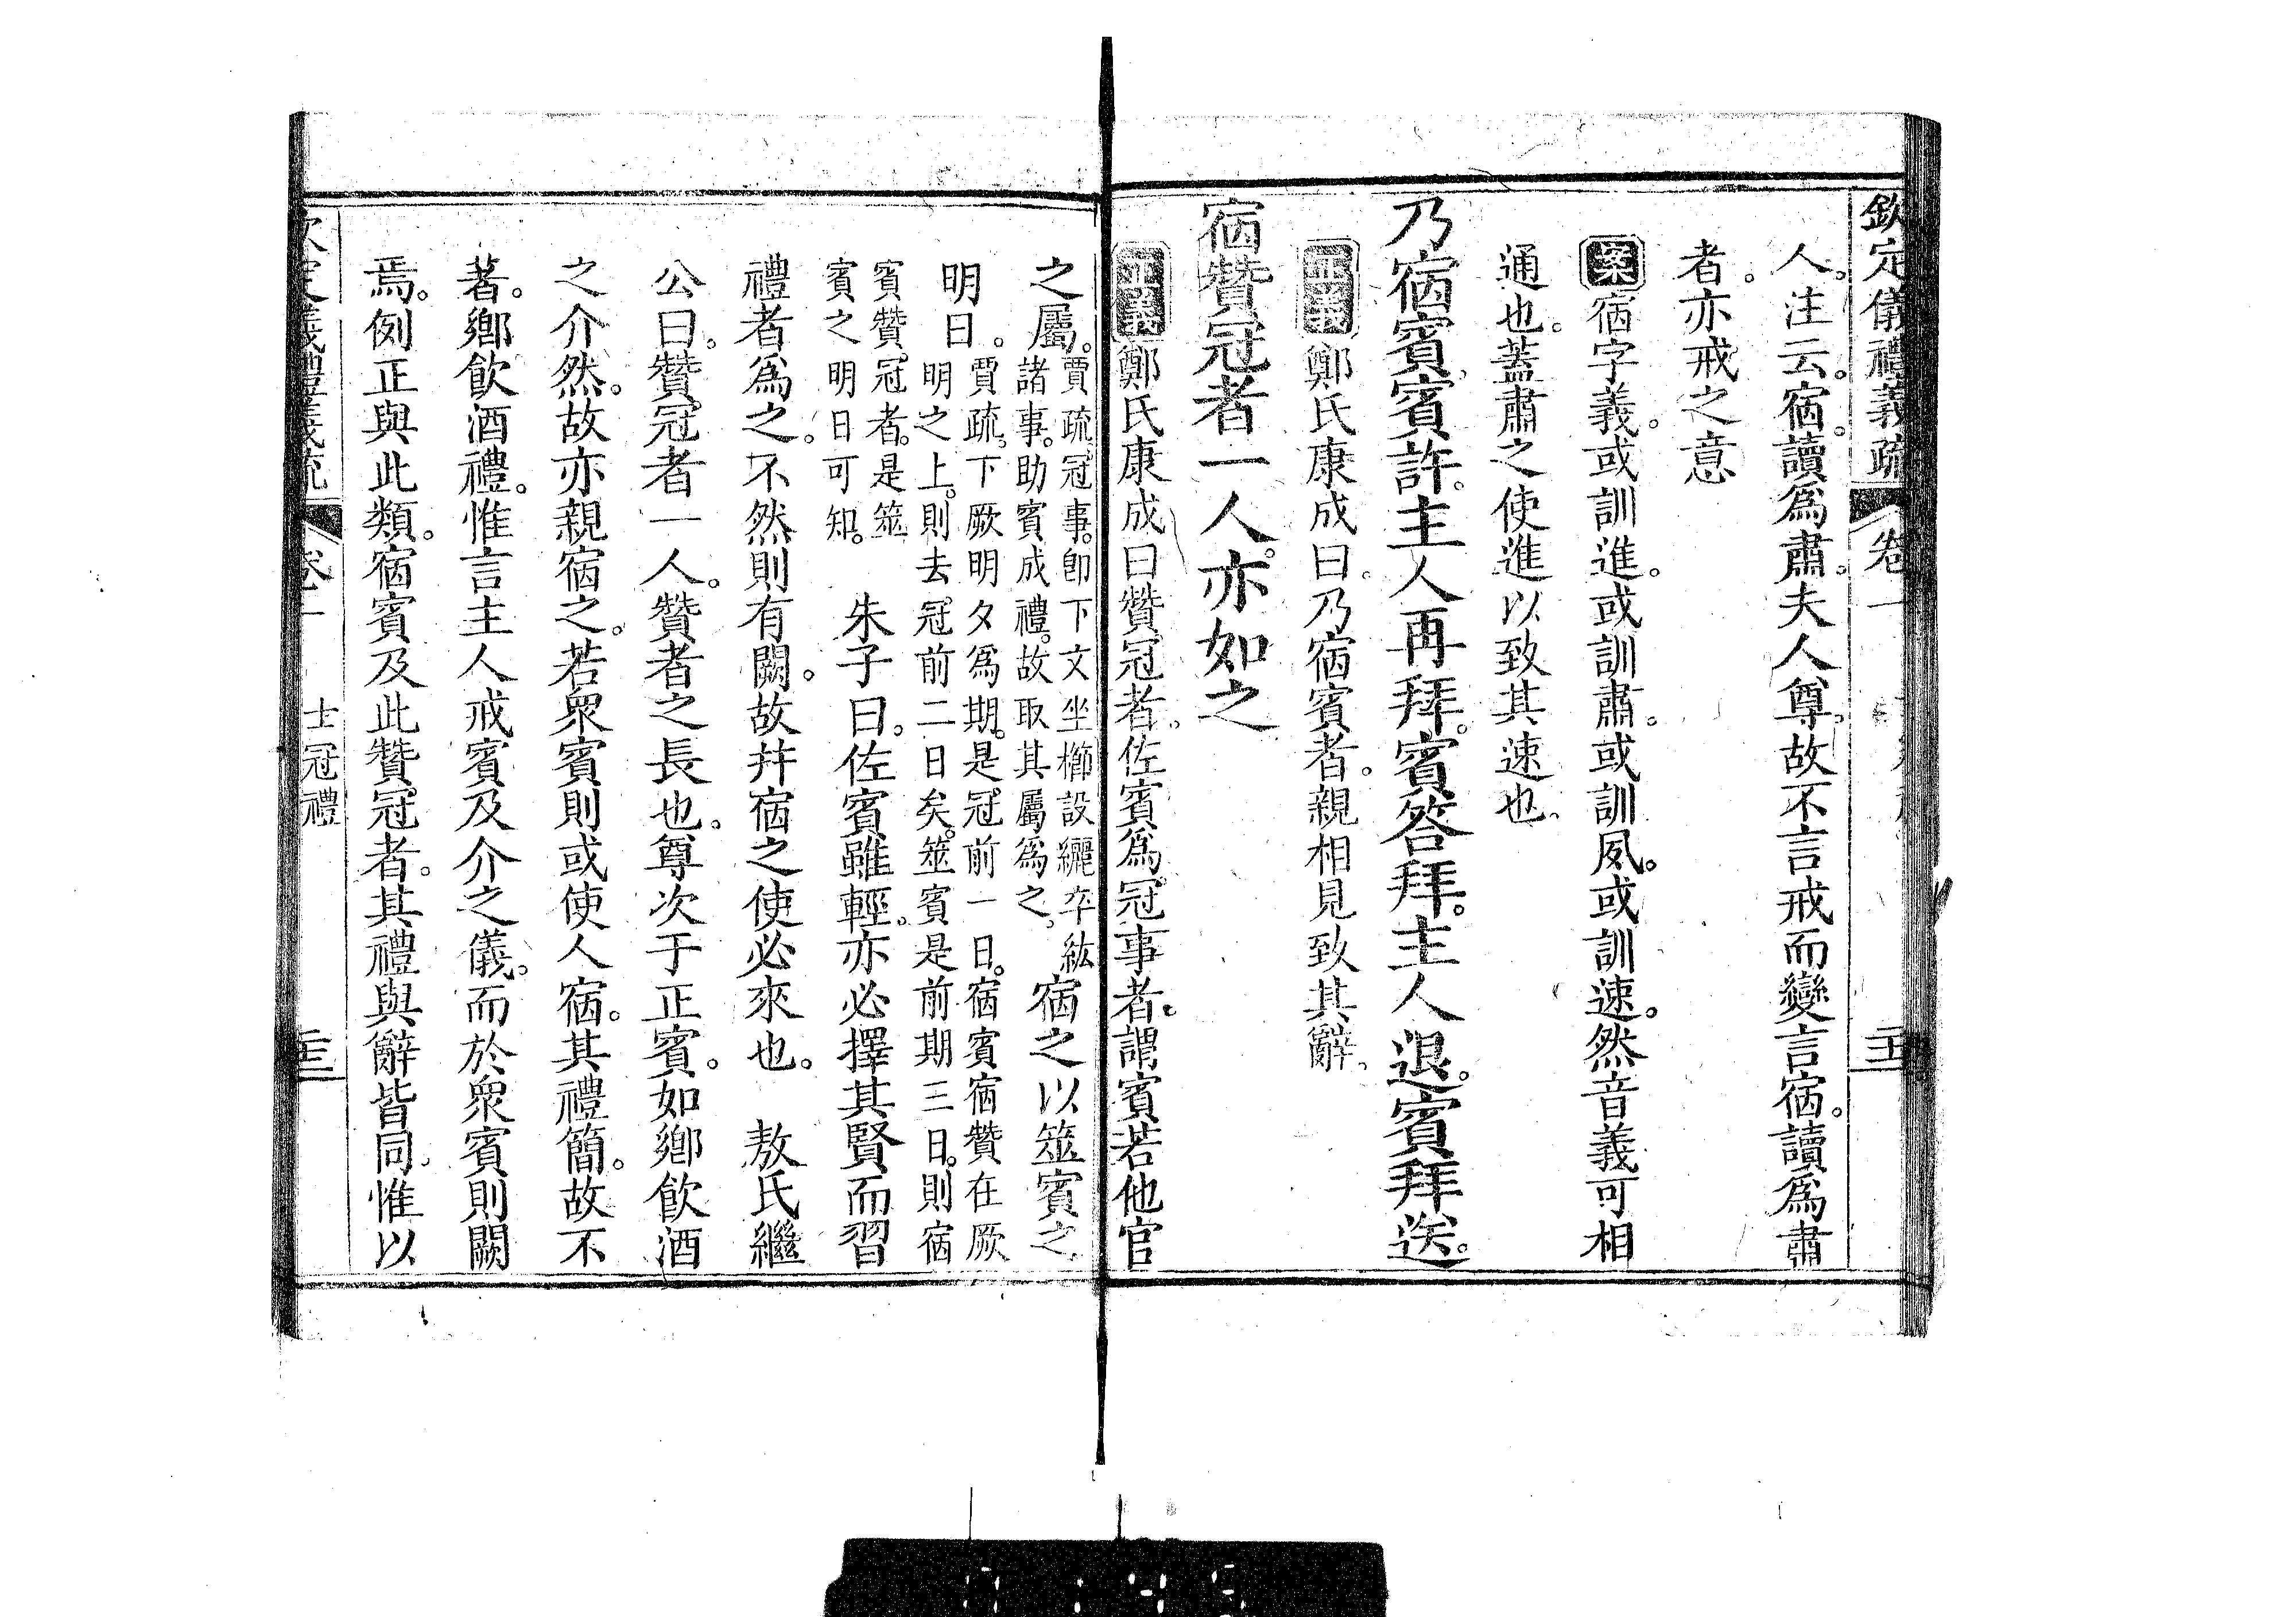 欽定儀禮義疏 卷一
人。注云。宿。讀爲肅。夫人尊。故不言戒而變言宿。讀爲肅
者。亦戒之意
案宿字義。或訓進。或訓肅。或訓夙。或訓速。然音義可相
通也。蓋肅之使進以致其速也。
乃宿賓。賓許。主人再拜。賓答拜。主人退。賓拜送。
正義鄭氏康成曰。乃宿賓者。親相見致其辭。
宿贊冠者一人。亦如之
正義鄭氏康成曰贊冠者。佐賓爲冠事者。謂賓若他官
之屬。賈疏。冠事。卽下文坐櫛設纚卒紘
諸事。助賓成禮。故取其屬爲之。宿之以筮賓之
明日。賈疏。下厥明夕爲期。是冠前一日。宿賓宿贊在厥
明之上。則去冠前二日矣。筮賓是前期三日。則宿
賓贊冠者。是筮
賓之明日可知。朱子曰。佐賓雖輕。亦必擇其賢而習
禮者爲之。不然則有闕。故幷宿之使必來也。 敖氏繼
公曰。贊冠者一人。贊者之長也。尊次于正賓。如鄉飲酒
之介然。故亦親宿之。若衆賓則或使人宿。其禮簡。故不
著。鄉飲酒禮。惟言主人戒賓及介之儀。而於衆賓則闕
焉。例正與此類。宿賓及此贊冠者。其禮與辭皆同。惟以
欽定儀禮義疏 卷一 士冠禮